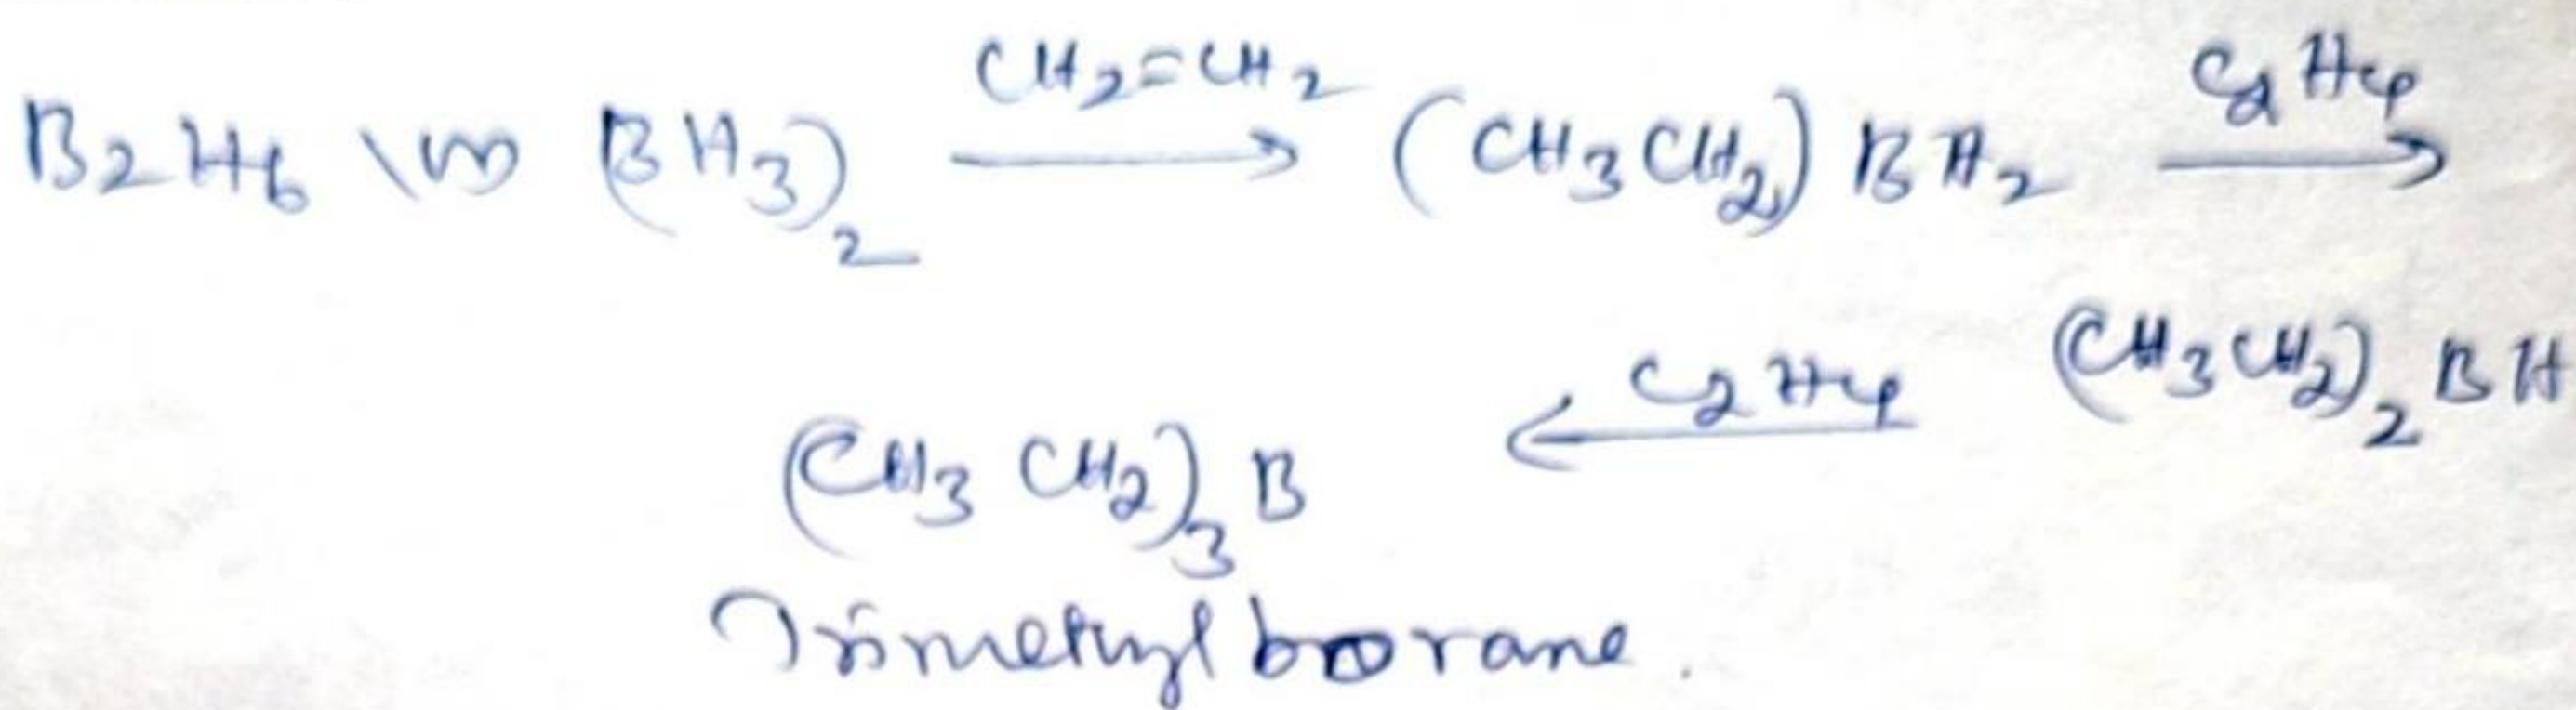 B2H6 \w (BH3)2 —CH2=CH2→ (CH3CH2)BH2 —C2H4→
(CH3CH2)3B ←C2H4— (CH3CH2)2BH
Trimethyl borane.